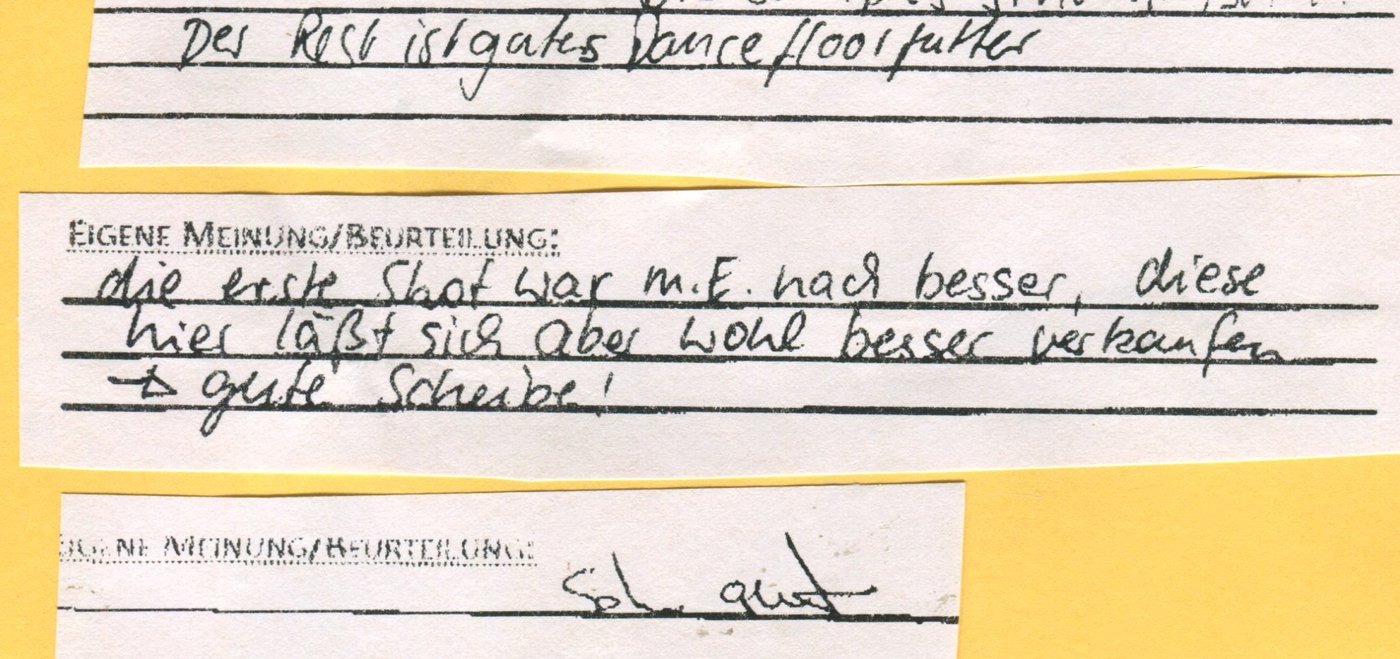 Der Rest ist gutes Dancefloorfutter
EIGENE MEINUNG/BEURTEILUNG:
die erste Shot war m.E. nach besser, diese
hier läßt sich aber wohl besser verkaufen
→ gute Scheibe!
EIGENE MEINUNG/BEURTEILUNG:
Sehr gut